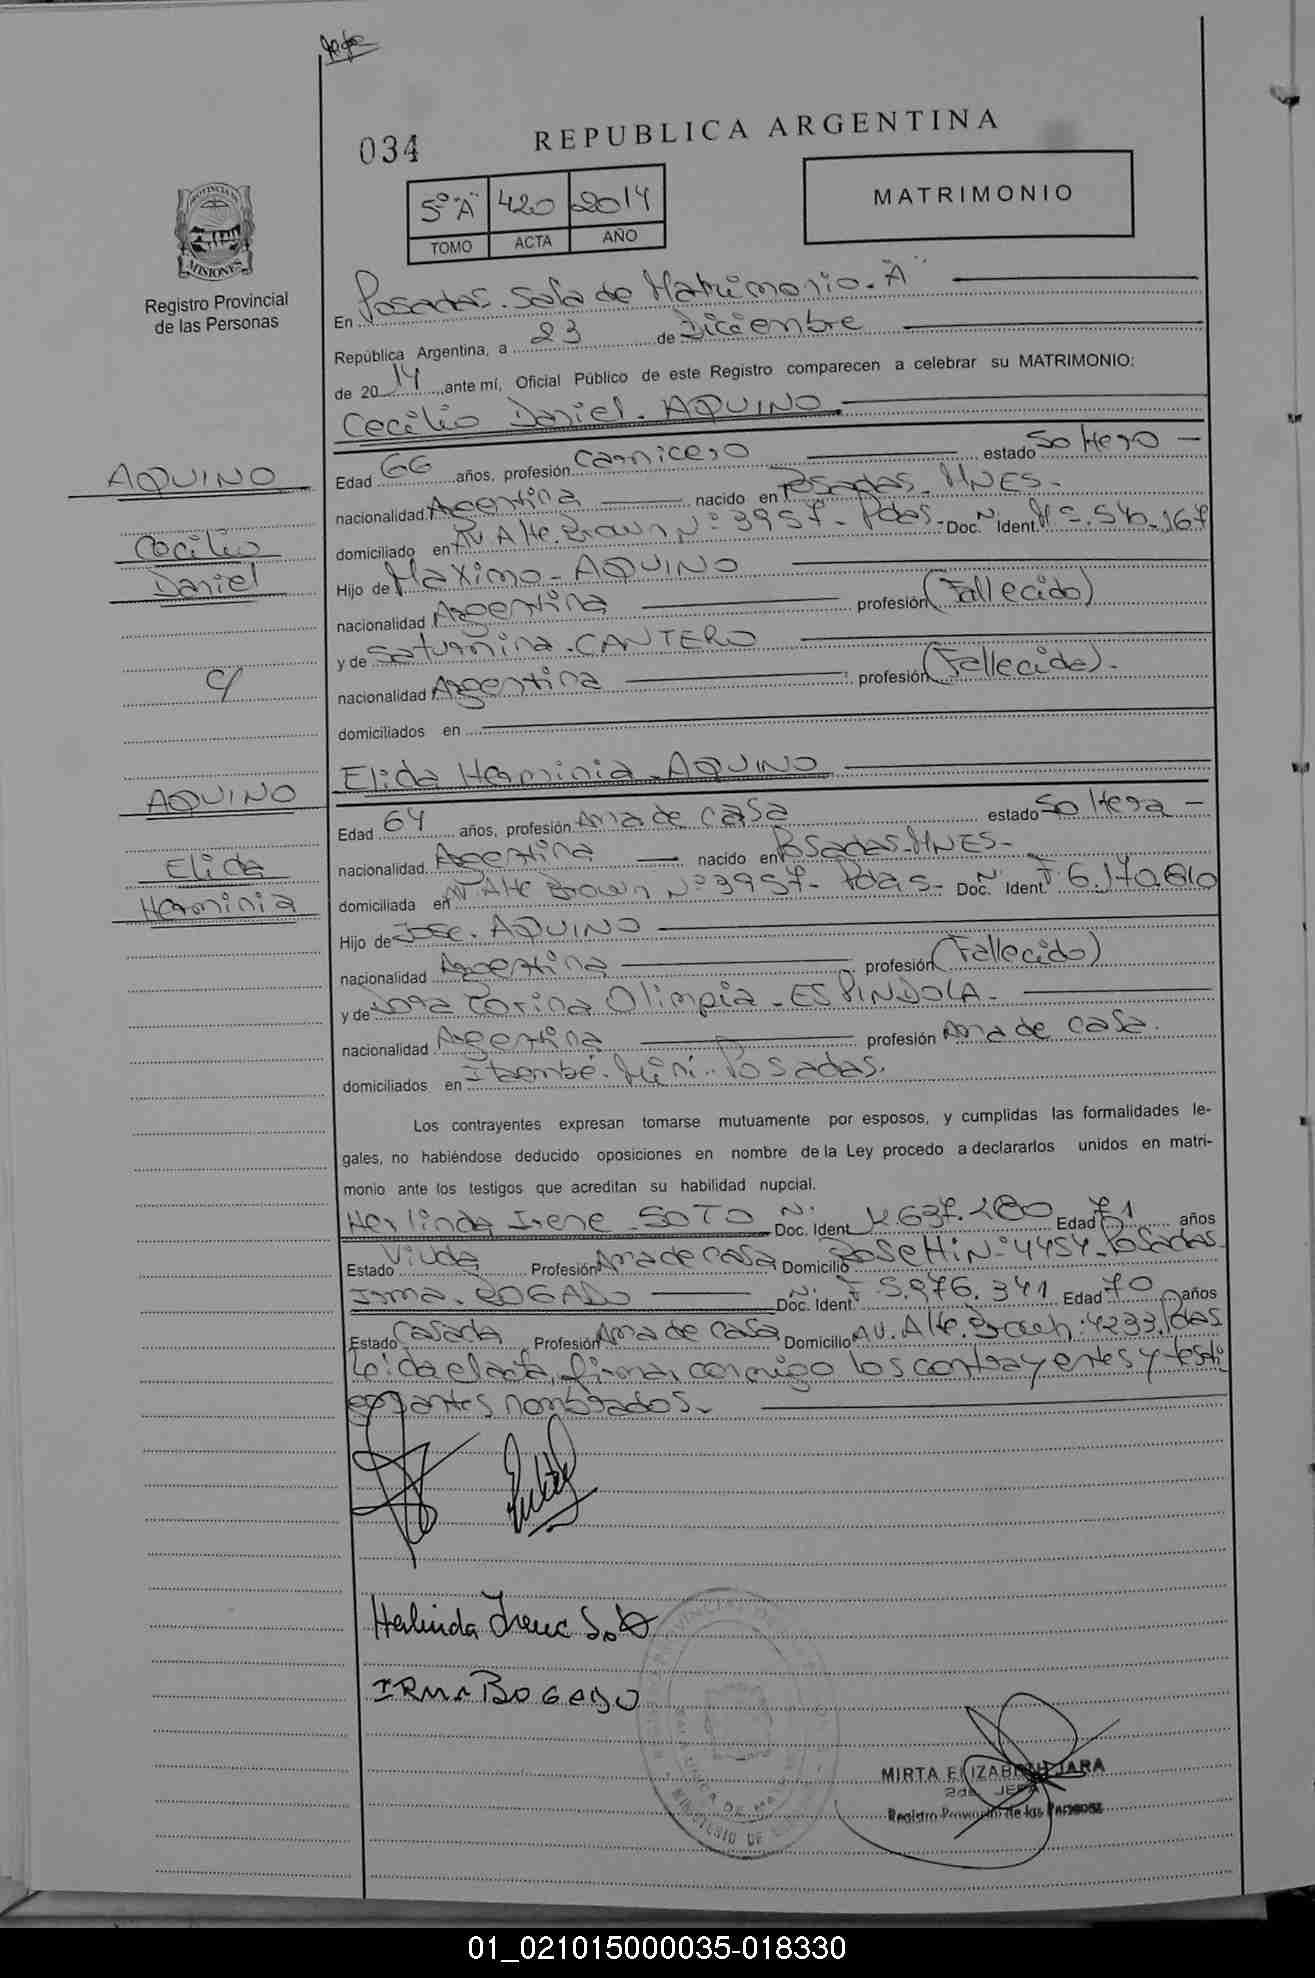 034
REPUBLICA ARGENTINA
5º "A" 420 2014
TOMO ACTA AÑO
MATRIMONIO
PROVINCIA
MISIONES
Registro Provincial
de las Personas
En Posadas. Sala de Matrimonio. "A"
República Argentina, a 23 de Diciembre
de 20 14 ante mí, Oficial Público de este Registro comparecen a celebrar su MATRIMONIO:
Cecilio Daniel. AQUINO
AQUINO
Cecilio
Daniel
c/
AQUINO
Elida
Herminia
Edad 66 años, profesión Carnicero estado Soltero
nacionalidad Argentina nacido en Posadas. MNES.
domiciliado en Av. Alte. Brown Nº 3957. Pdas. Doc. Ident.
Hijo de Maximo. AQUINO
nacionalidad Argentina profesión (Fallecido)
y de Saturnina. CANTERO
nacionalidad Argentina profesión (Fallecida).
domiciliados en
Elida Herminia. AQUINO
Edad 64 años, profesión Ama de casa estado Soltera
nacionalidad. Argentina nacido en Posadas. MNES.
domiciliada en Av Alte Brown Nº 3957. Pdas. Doc. Ident. Nº F 6.170.610
Hijo de Jose. AQUINO
nacionalidad Argentina profesión (Fallecido)
y de Olimpia. ESPINDOLA.
nacionalidad Argentina profesión Ama de casa.
domiciliados en Itaembé. Miní. Posadas.
Los contrayentes expresan tomarse mutuamente por esposos, y cumplidas las formalidades le-
gales, no habiéndose deducido oposiciones en nombre de la Ley procedo a declararlos unidos en matri-
monio ante los testigos que acreditan su habilidad nupcial.
Herlinda Irene. SOTO Doc. Ident. Edad 71 años
Estado Viuda Profesión Ama de casa Domicilio Rosetti Nº 4454. Posadas
Irma. BOGADO Doc. Ident. Nº F 5.976.341 Edad 70 años
Estado Casada Profesión Ama de casa Domicilio Av. Alte. Brown: 4233. Pdas
Leida el acta, firman conmigo los contrayentes y testi
nombrados.
Herlinda Irene Soto
IRMA BOGADO
MIRTA ELIZABETH JARA
2da. JEFA
Registro Provincial de las Personas
01_021015000035-018330